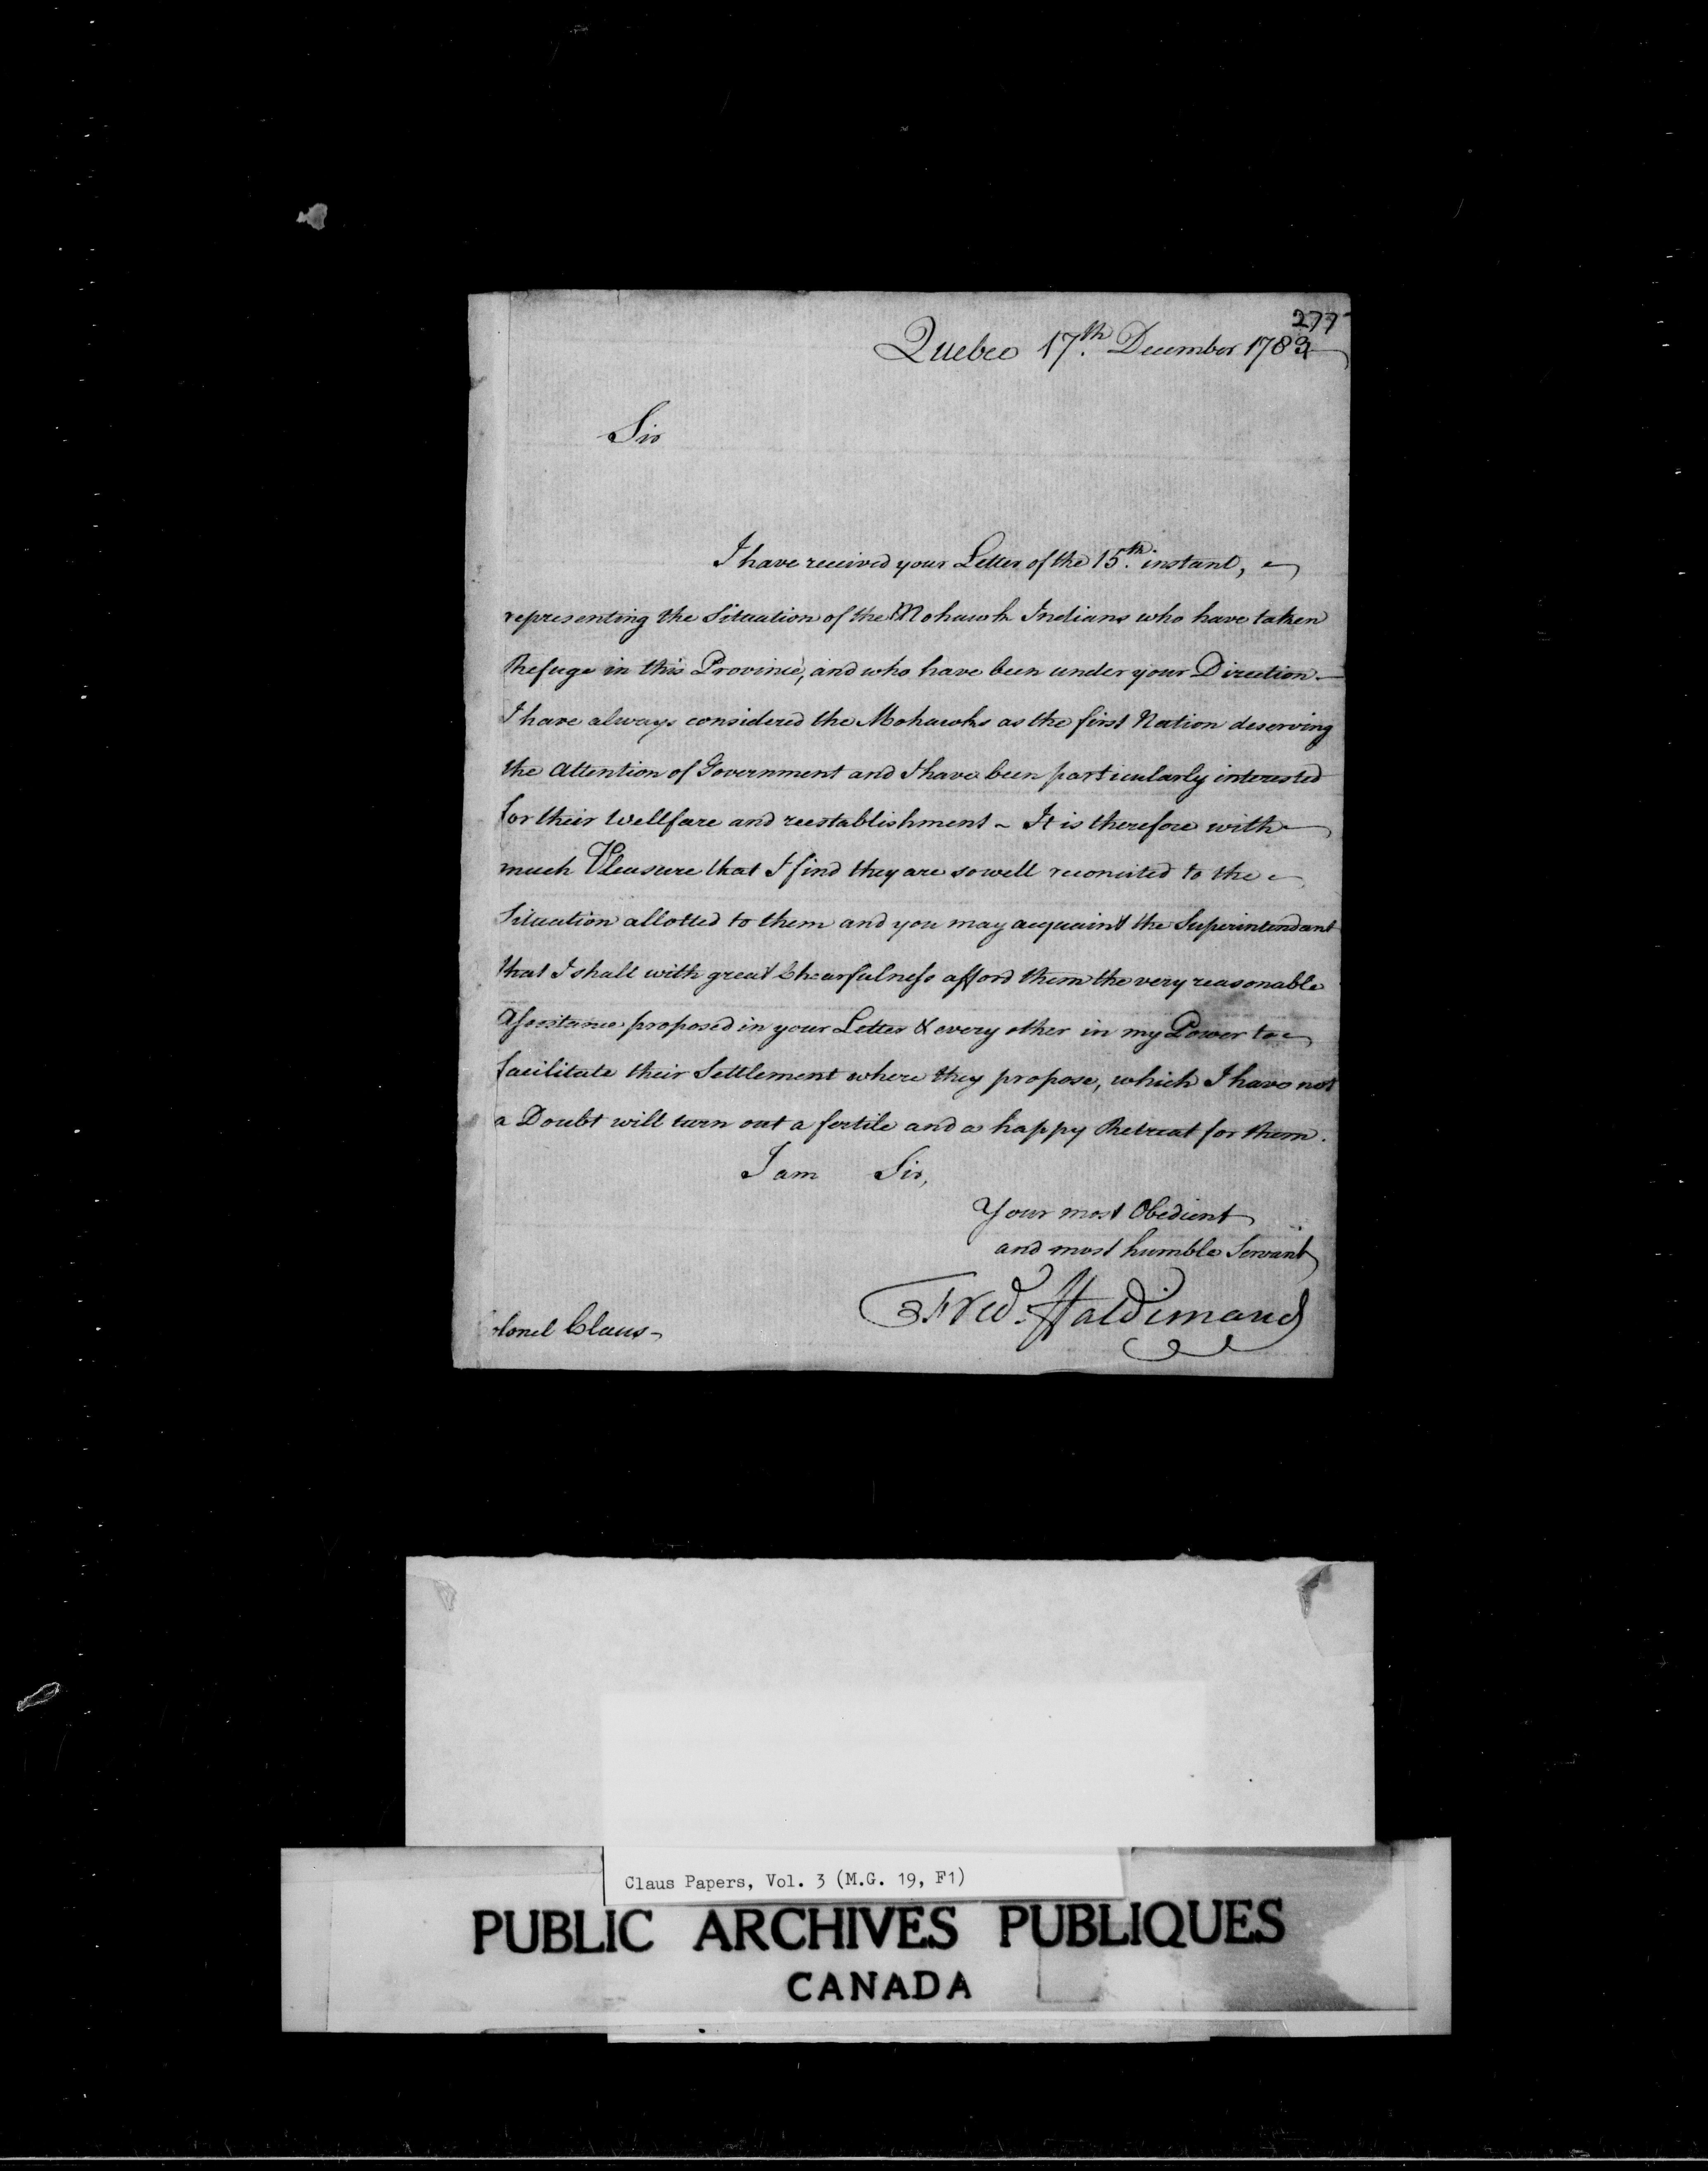 277
Quebec 17th. December 1783
Sir
I have received your Letter of the 15th. instant,
representing the Situation of the Mohawk Indians who have taken
Refuge in this Province, and who have been under your Direction.
I have always considered the Mohawks as the first Nation deserving
the Attention of Government and I have been particularly interested
for their Wellfare and reestablishment - It is therefore with
much Pleasure that I find they are so well reconciled to the
Situation allotted to them and you may acquaint the Superintendant
that I shall with great Chearfulness afford them the very reasonable
Assistance proposed in your Letter & every other in my Power to
facilitate their Settlement where they propose, which I have not
a Doubt will turn out a fertile and a happy Retreat for them.
I am Sir,
Your most Obedient
and most humble Servant
Fred. Haldimand
olonel Claus
Claus Papers, Vol. 3 (M.G. 19, F1)
PUBLIC ARCHIVES PUBLIQUES
CANADA